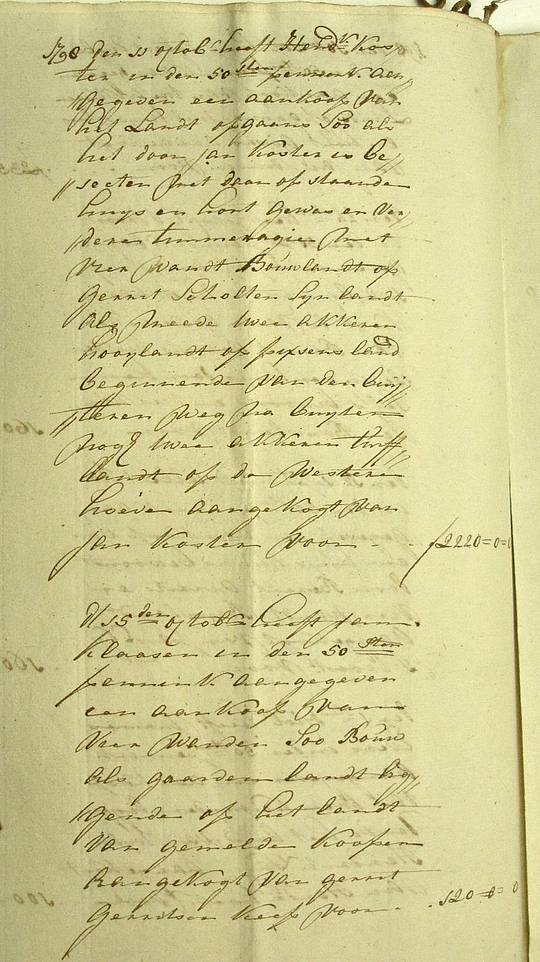 1798 den 11 octobr heeft Hendk Kos
ter in den 50sten penninк aan
gegeven een aankoop van
het Landt opgaans Soo als
het door jan Koster is be
seeten met daar op staande
huys en hout gewas en ver
dere timmeragie met
vier wandt Bouwlandt op
gerrit Scholten Syn landt
Als meede twee akkeren
hooylandt op land
beginnende van den buy
teren weg na buyten
nog twee akkeren turf
landt op de Wester
hoeve aangekogt van
jan Koster voor - f2220=0=0
dt 15den octobr heeft jan
Klaasen in den 50sten
pennink aangegeven
een aankoop van
vier wanden Soo Bouw
als gaarden landt leg
gende op het landt
van gemelde kooper
Aangekogt van gerrit
gerritsen Keep voor - 120=0=0